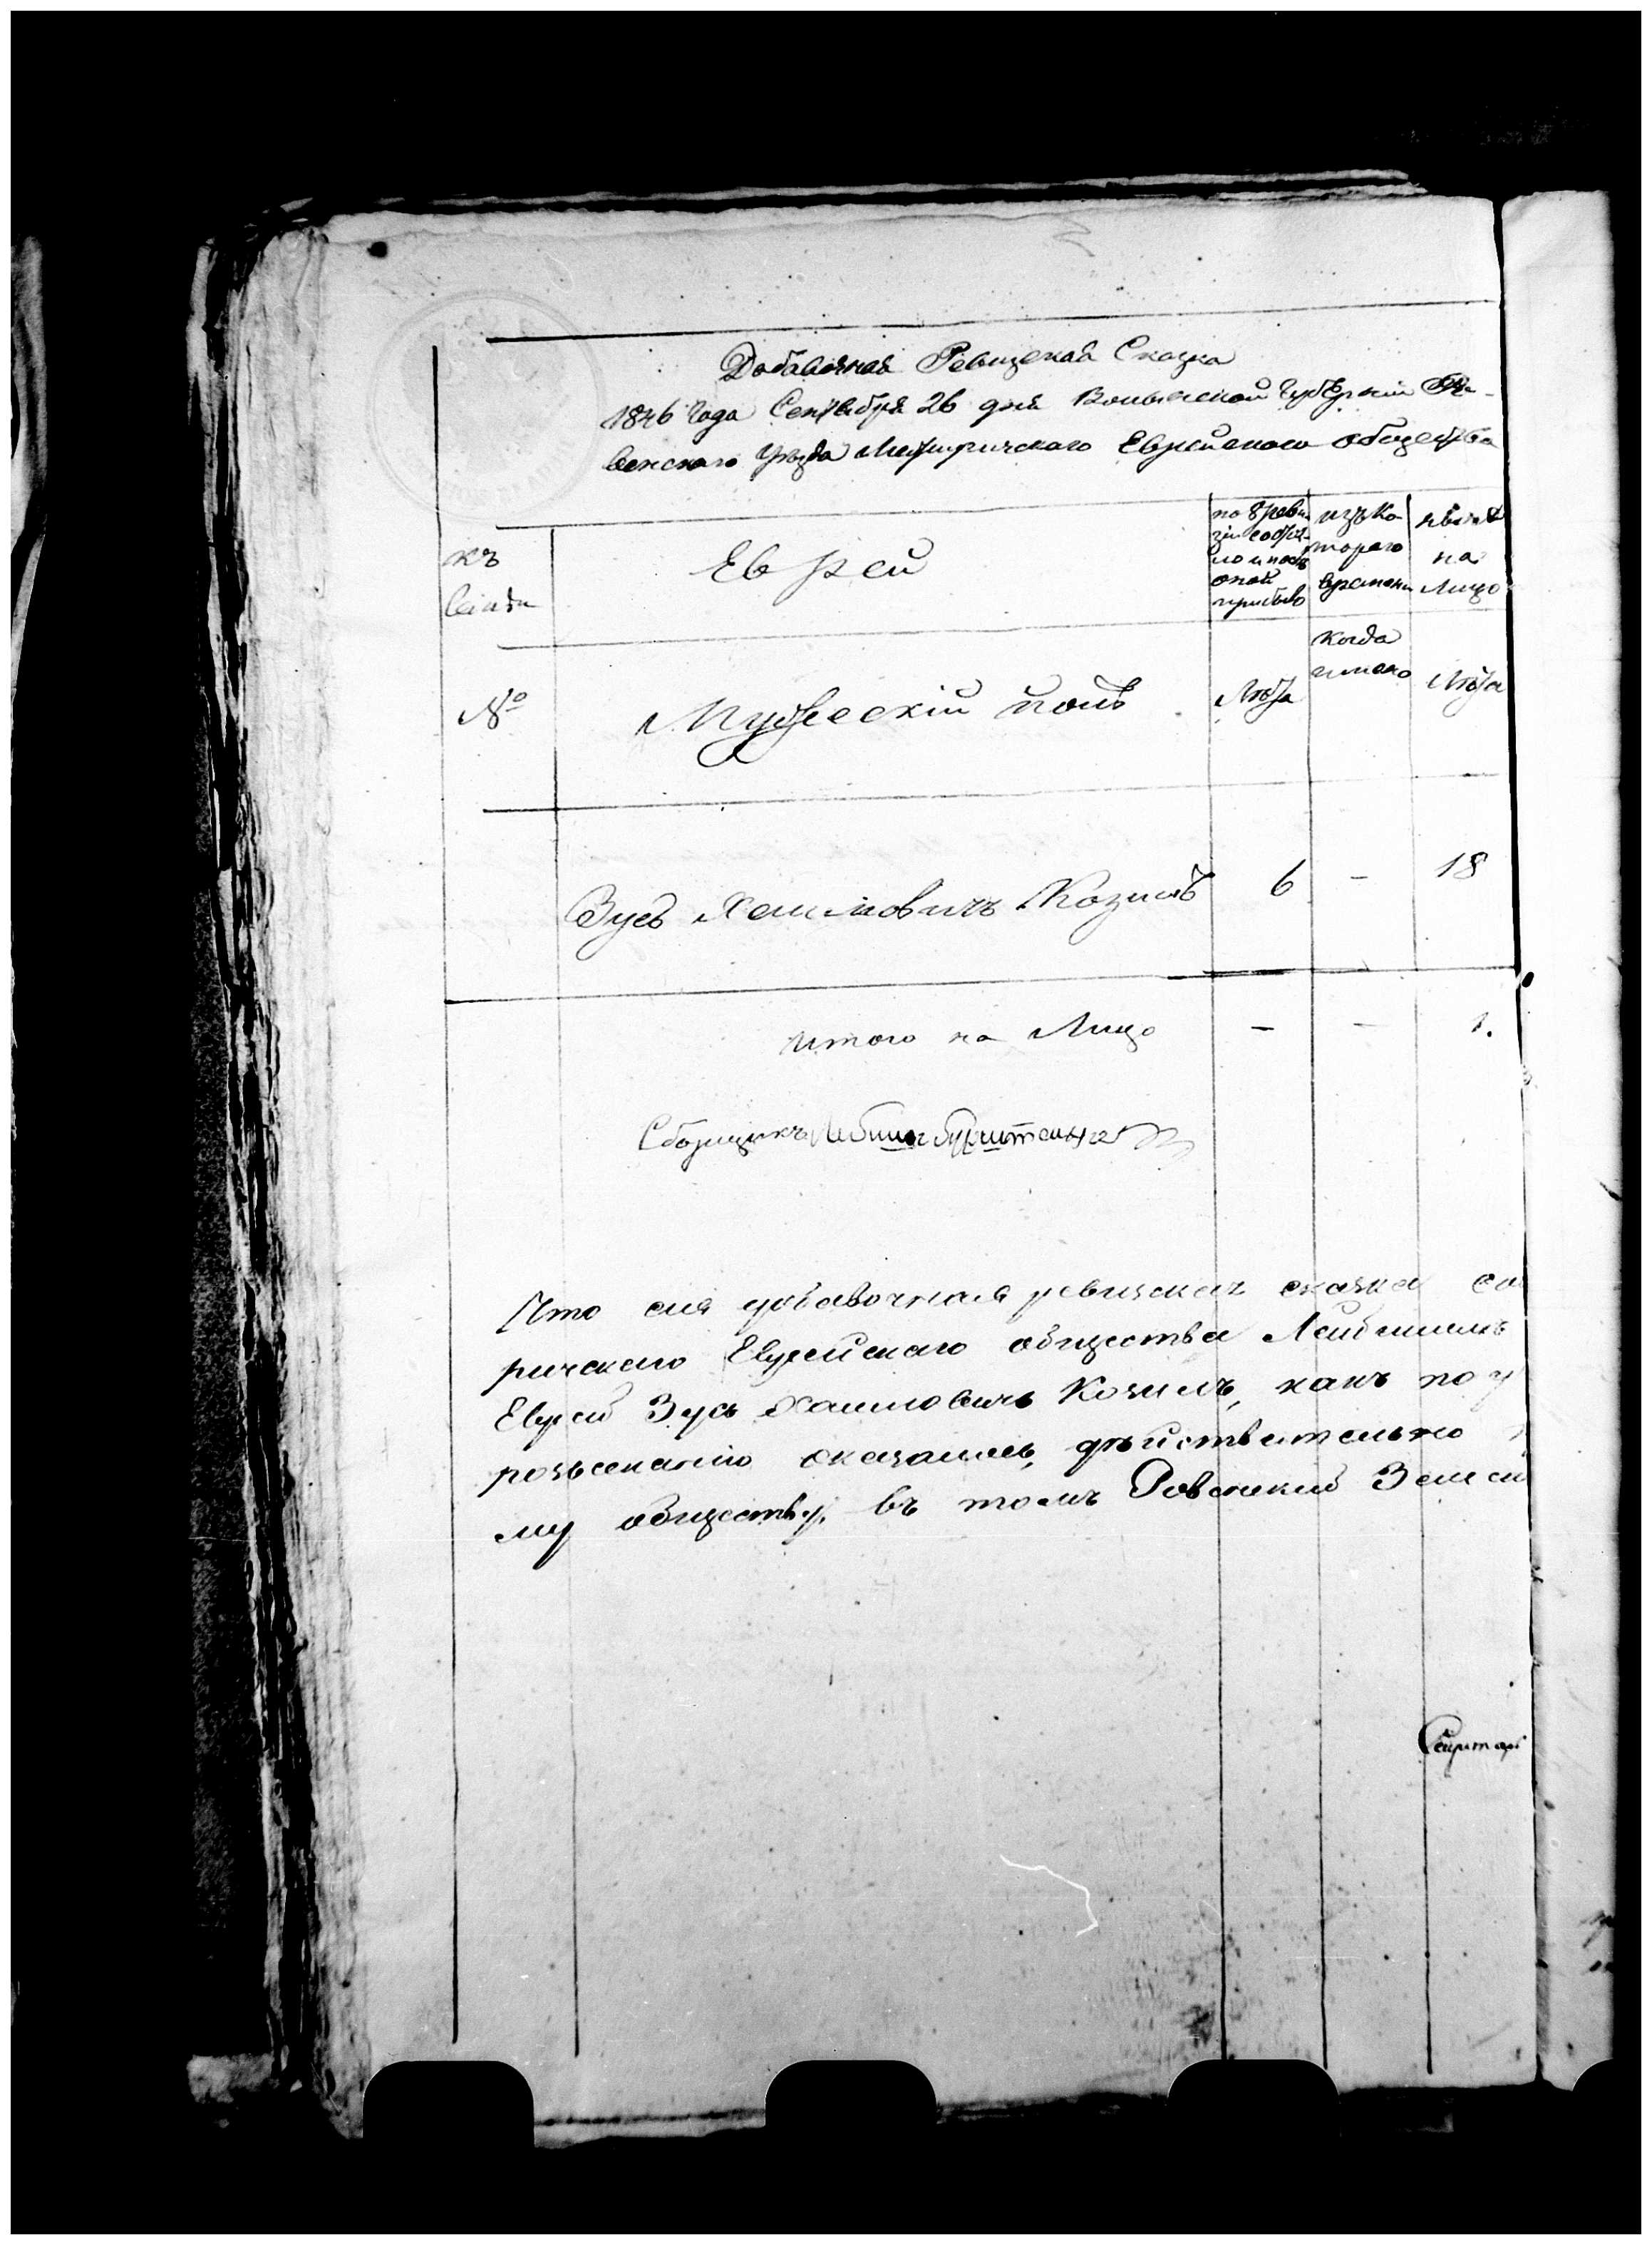 Добавочная Ревизская Сказка
1846 года Сентября 26 дня Волынской Губернии Ро-
венского уѣзда Межиричского Еврейского общества
къ
Евреи
по 8 реви-
зіи состоя-
ло и послѣ
оной
прибыло
изъ ко-
тораго
времени
нынѣ
на
Лицо
№
Мужескій полъ
Лѣта
когда
имено
Лѣта
Зусь Хаимовичъ Козилъ 6 – 18
итого на Лицо – – 1.
Сборщикъ
Что сия добавочная ревизская сказка со
ричскаго Еврейскаго общества Лейбишемъ
Еврей Зусь Хаимовичъ Козилъ, какъ по у
розысканію оказалось, дѣйствительно
му обществу, въ томъ Ровенский Земск
Секретарь